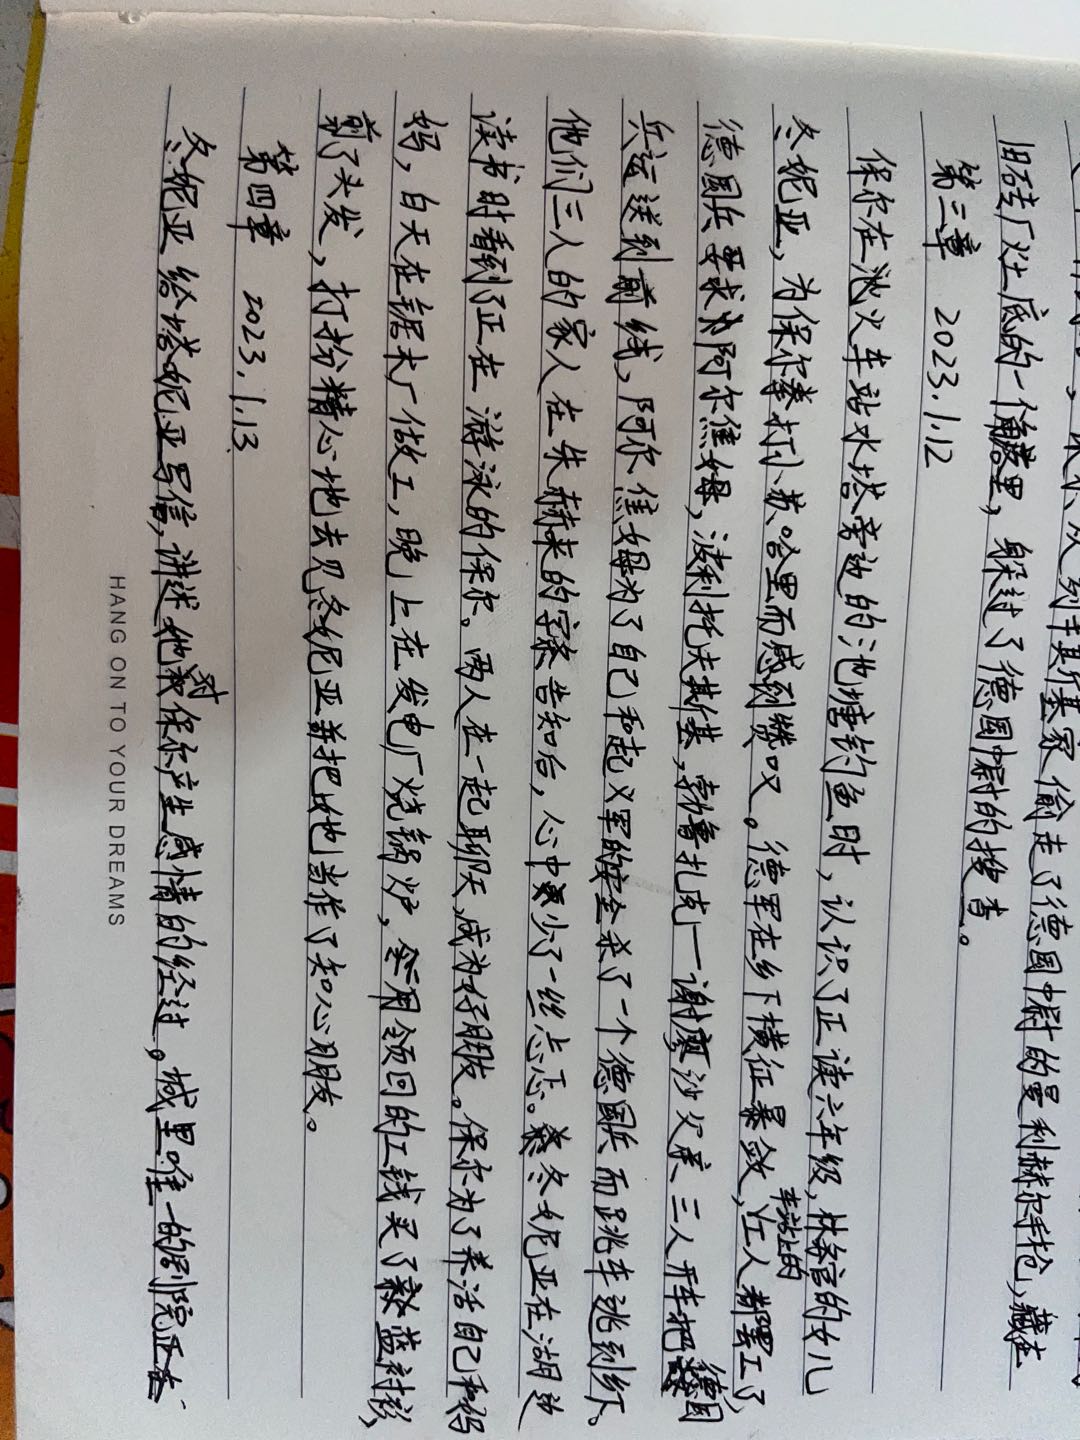 保尔从列辛斯基家偷走了德国中尉的曼利赫尔手枪,藏在
旧砖厂灶底的一角破里,躲过了德国中尉的搜查。
第三章 2023.1.12
保尔在火车站水塔旁边的池塘钓鱼时,认识了正读六年级,林务官的女儿
冬妮亚,为保尔拳打小苏哈里而感到赞叹。德军在乡下横征暴敛,车站上的工人都罢工了,
德国兵要求阿尔焦姆,波利托夫斯基,勃鲁扎克—谢廖沙父亲三人开车把德国
兵运送到前线,阿尔焦姆为了自己和起义军的安全杀了一个德国兵而跳车逃到乡下。
他们三人的家人在朱赫来的字条告知后,心中更少了一丝忐忑。冬妮亚在湖边
读书时看到了正在游泳的保尔。两人在一起聊天,成为好朋友。保尔为了养活自己和妈
妈,白天在锯木厂做工,晚上在发电厂烧锅炉,全用领回的工钱买了蓝衬衫,
剪了头发,打扮精心地去见冬妮亚并把她当作了知心朋友。
第四章 2023.1.13
冬妮亚给塔妮亚写信,讲述她对保尔产生感情的经过。城里唯一的剧院正在
HANG ON TO YOUR DREAMS